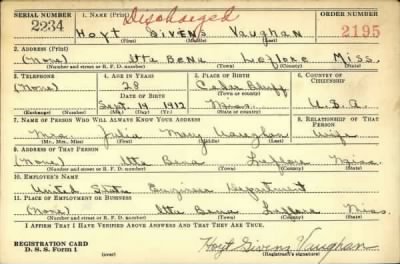 SERIAL NUMBER
1. NAME (Print)
Discharged
ORDER NUMBER
2234
Hoyt Givens Vaughan
2195
(First) (Middle) (Last)
2. ADDRESS (Print)
(None) Itta Bena Leflore Miss.
(Number and street or R. F. D. number) (Town) (County) (State)
3. TELEPHONE
4. AGE IN YEARS
5. PLACE OF BIRTH
6. COUNTRY OF CITIZENSHIP
(None)
28
DATE OF BIRTH
(Town or county)
Sept. 14 1912
Miss.
U.S.A.
(Exchange) (Number)
(Mo.) (Day) (Yr.)
(State or country)
7. NAME OF PERSON WHO WILL ALWAYS KNOW YOUR ADDRESS
8. RELATIONSHIP OF THAT PERSON
Mrs. Julia Mary Vaughan Wife
(Mr., Mrs., Miss) (First) (Middle) (Last)
9. ADDRESS OF THAT PERSON
(None) Itta Bena Leflore Miss.
(Number and street or R. F. D. number) (Town) (County) (State)
10. EMPLOYER'S NAME
United State Engineer Department
11. PLACE OF EMPLOYMENT OR BUSINESS
(None) Itta Bena Leflore Miss.
(Number and street or R. F. D. number) (Town) (County) (State)
I AFFIRM THAT I HAVE VERIFIED ABOVE ANSWERS AND THAT THEY ARE TRUE.
REGISTRATION CARD
D. S. S. Form 1
(over)
Hoyt Givens Vaughan
(Registrant's signature)